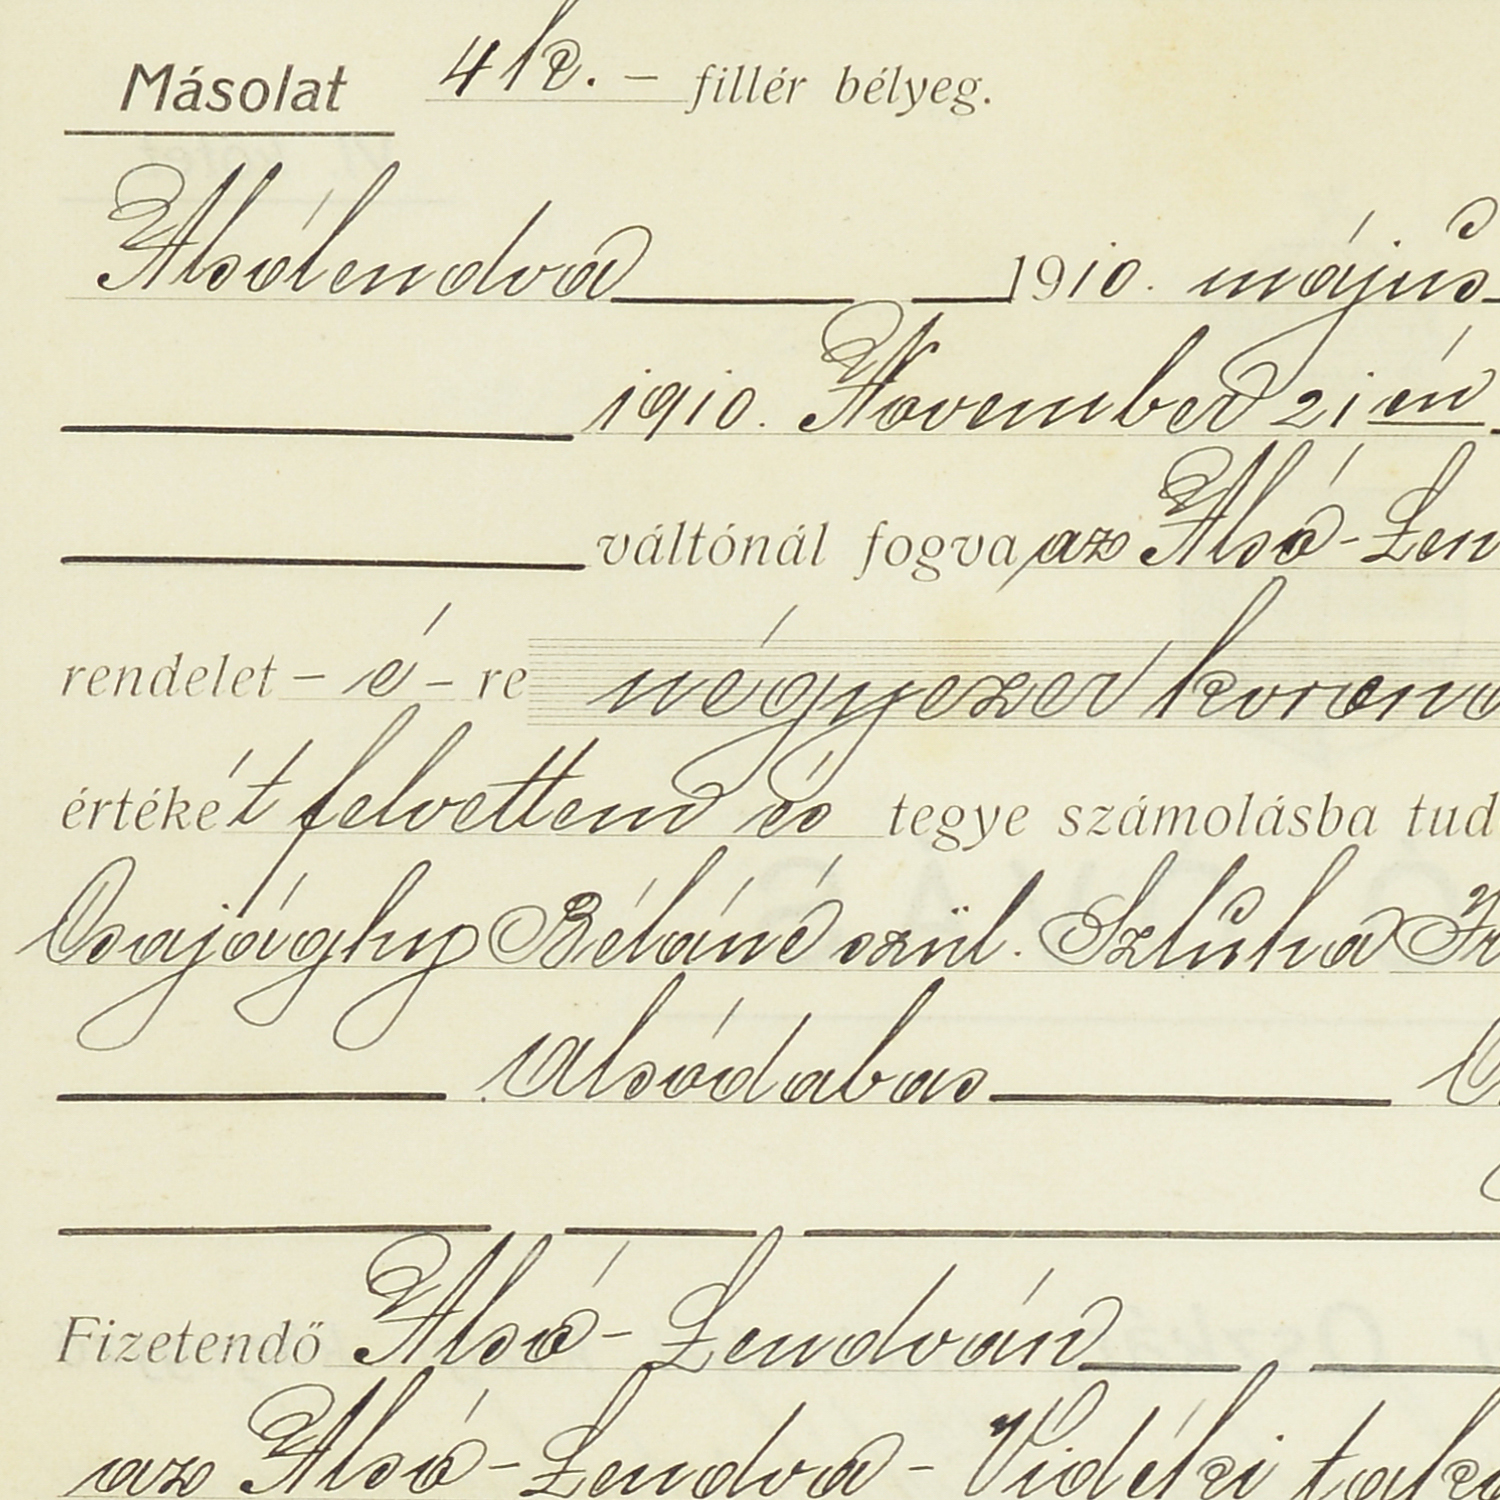 Másolat 4 K. – fillér bélyeg.
Alsólendva 1910. május
1910. November 21 én
váltónál fogva az Alsó-Len
rendelet – é – re négyezer koron
értékét felvettem és tegye számolásba tud
Csajághy Béláné szül. Szluha Fr
Alsódabas
Fizetendő Alsó-Lendván
az Alsó-Lendva-Vidéki taka